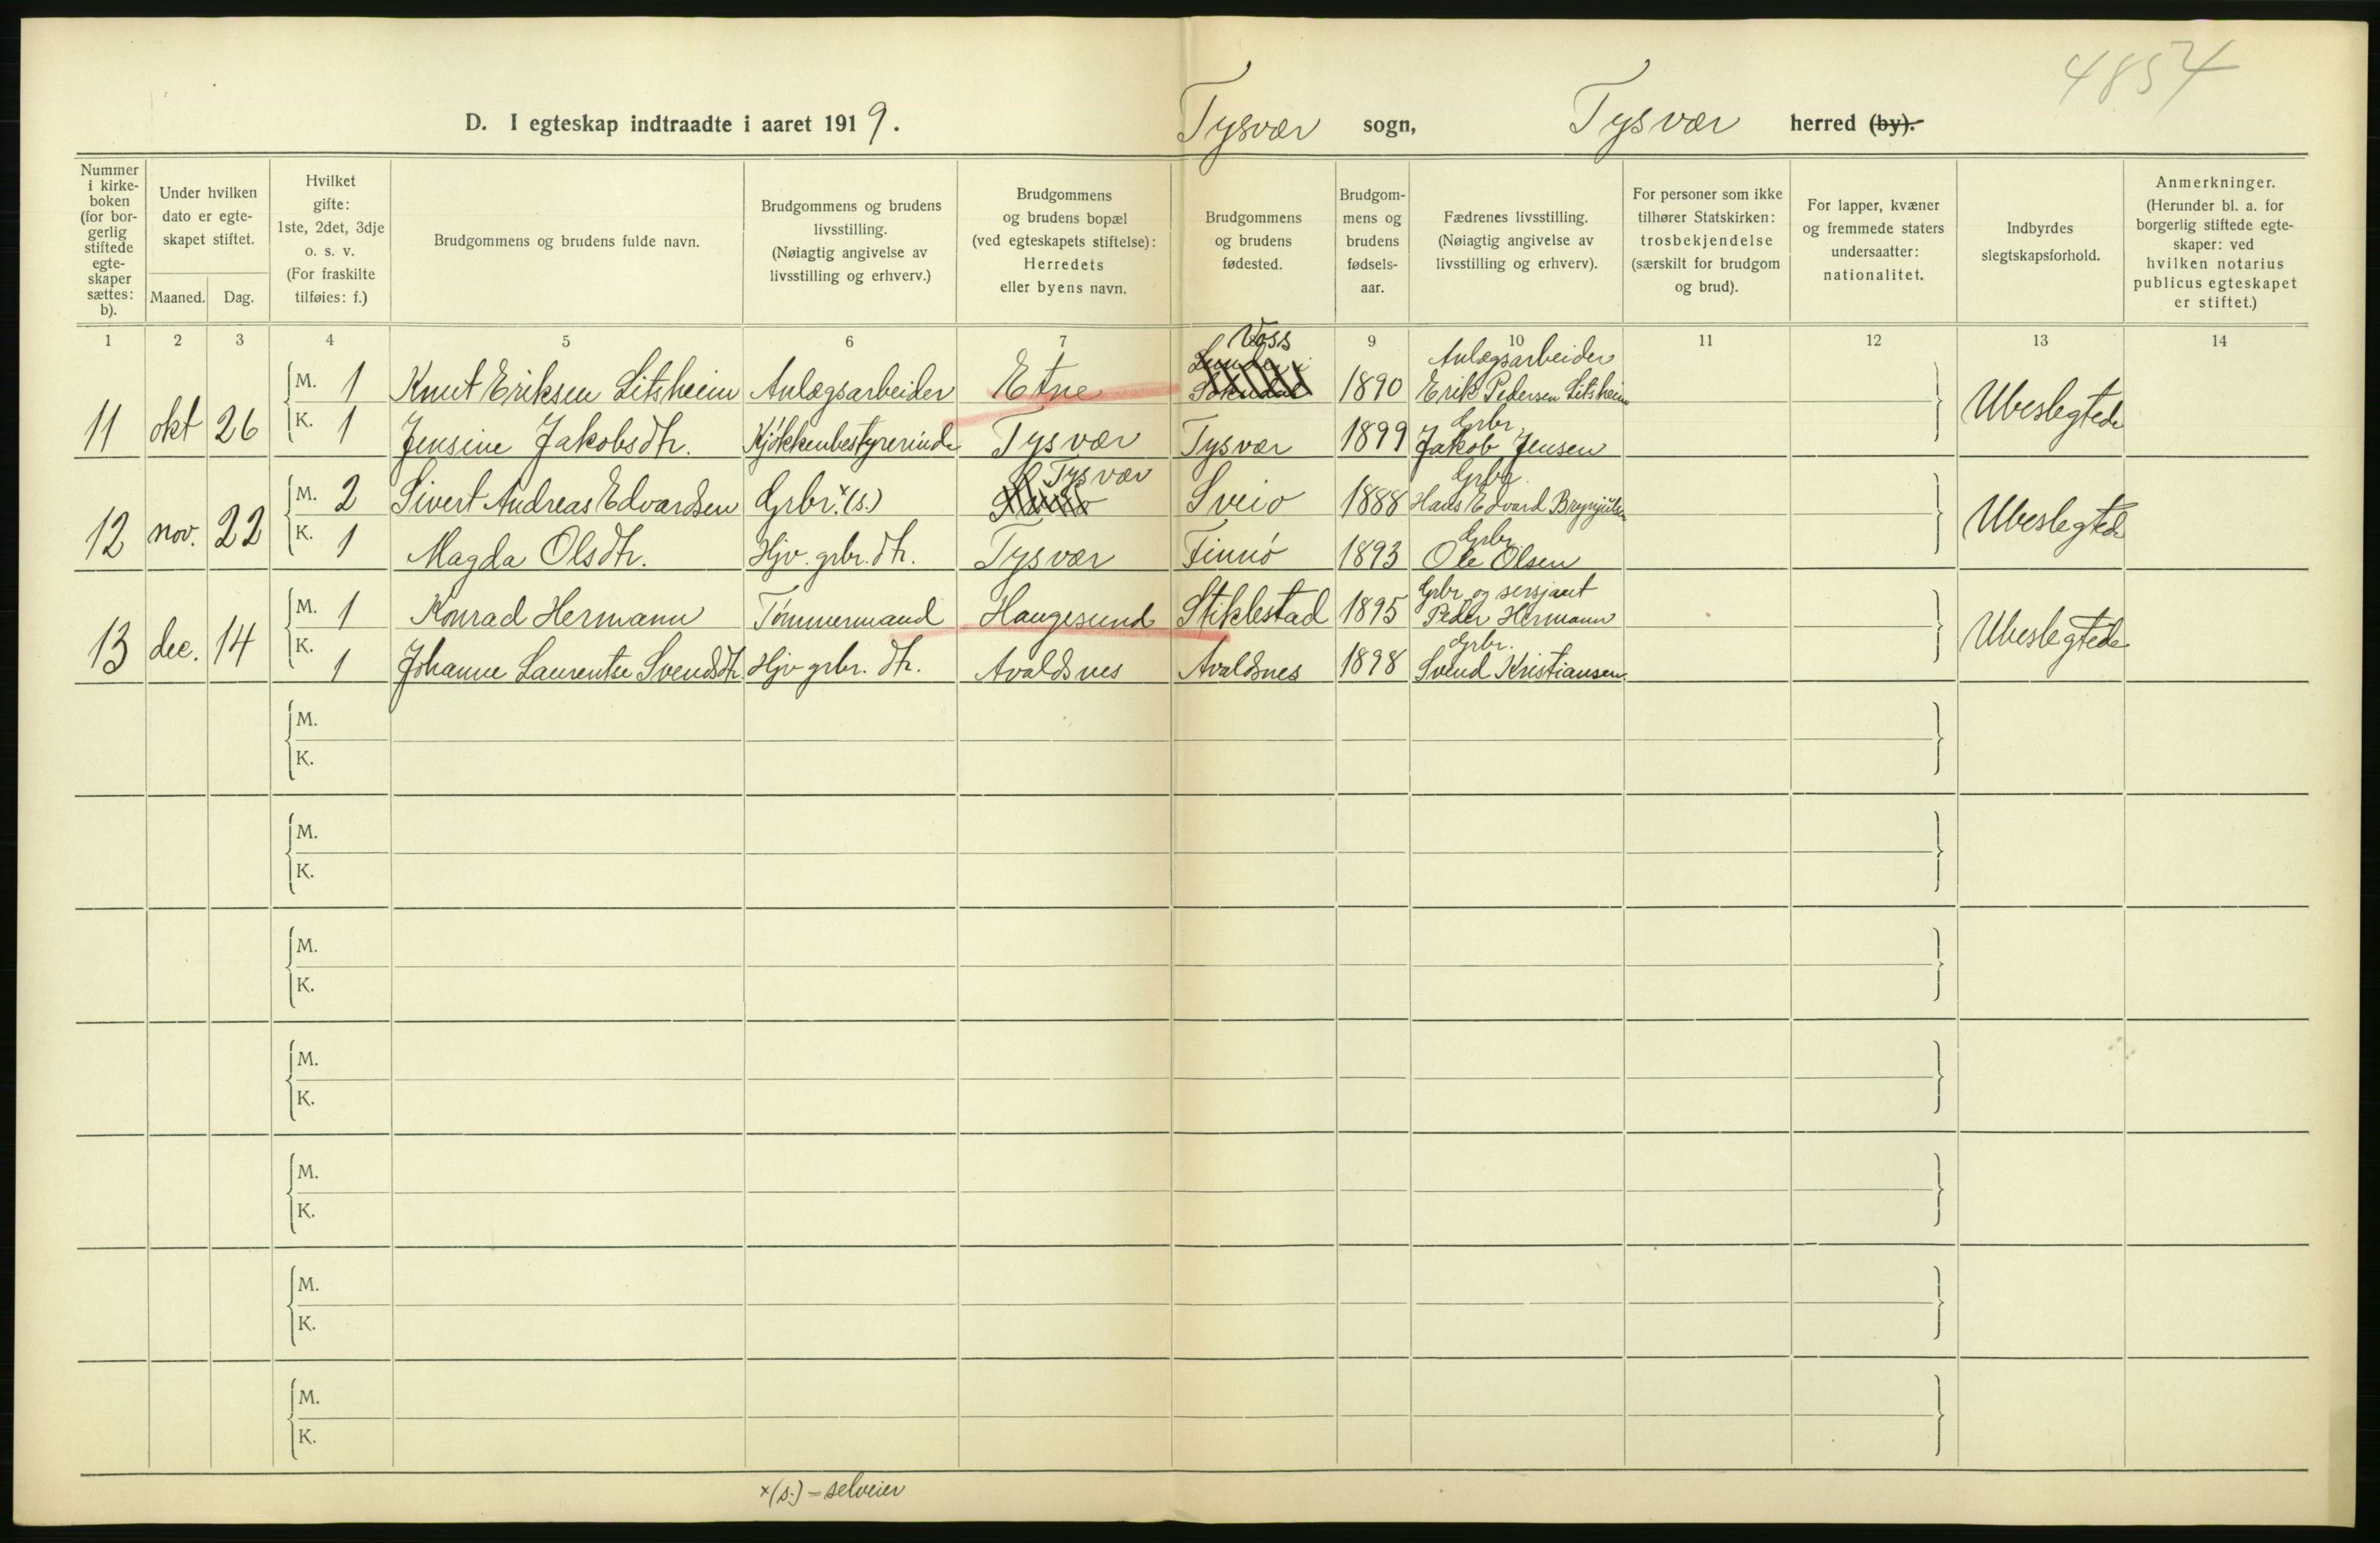 4854
D. I egteskap indtraadte i aaret 1919. Tysvær sogn, Tysvær herred (by).
Nummer i kirkeboken (for borgerlig stiftede egteskaper sættes: b).
Under hvilken dato er egteskapet stiftet.
Maaned. Dag.
Hvilket gifte: 1ste, 2det, 3dje o. s. v. (For fraskilte tilføies: f.)
Brudgommens og brudens fulde navn.
Brudgommens og brudens livsstilling. (Nøiagtig angivelse av livsstilling og erhverv.)
Brudgommens og brudens bopæl (ved egteskapets stiftelse): Herredets eller byens navn.
Brudgommens og brudens fødested.
Brudgommens og brudens fødselsaar.
Fædrenes livsstilling. (Nøiagtig angivelse av livsstilling og erhverv).
For personer som ikke tilhører Statskirken: trosbekjendelse (særskilt for brudgom og brud).
For lapper, kvæner og fremmede staters undersaatter: nationalitet.
Indbyrdes slegtskapsforhold.
Anmerkninger. (Herunder bl. a. for borgerlig stiftede egteskaper: ved hvilken notarius publicus egteskapet er stiftet.)
1 2 3 4 5 6 7 8 9 10 11 12 13 14
11 okt 26 M. 1 Knut Eriksen Litsheim Anlægsarbeider Etne Voss 1890 Anlægsarbeider Erik Pedersen Litsheim Ubeslegtede
K. 1 Jensine Jakobsdtr. Kjøkkenbestyrerinde Tysvær Tysvær 1899 Grbr. Jakob Jensen
12 nov. 22 M. 2 Sivert Andreas Edvardsen Grbr.x (s.) Tysvær Sveio 1888 Grbr. Hans Edvard Brynjulsen Ubeslegtede
K. 1 Magda Olsdtr. Hjv. grbr. dtr. Tysvær Finnö 1893 Grbr. Ole Olsen
13 dec. 14 M. 1 Konrad Hermann Tømmermand Haugesund Stiklestad 1895 Grbr og sersjant Peder Hermann Ubeslegtede
K. 1 Johanne Laurentse Svendsdtr. Hjv grbr. dtr. Avaldsnes Avaldsnes 1898 Grbr. Svend Kristiansen.
M.
K.
M.
K.
M.
K.
M.
K.
M.
K.
M.
K.
M.
K.
x (s.) = selveier